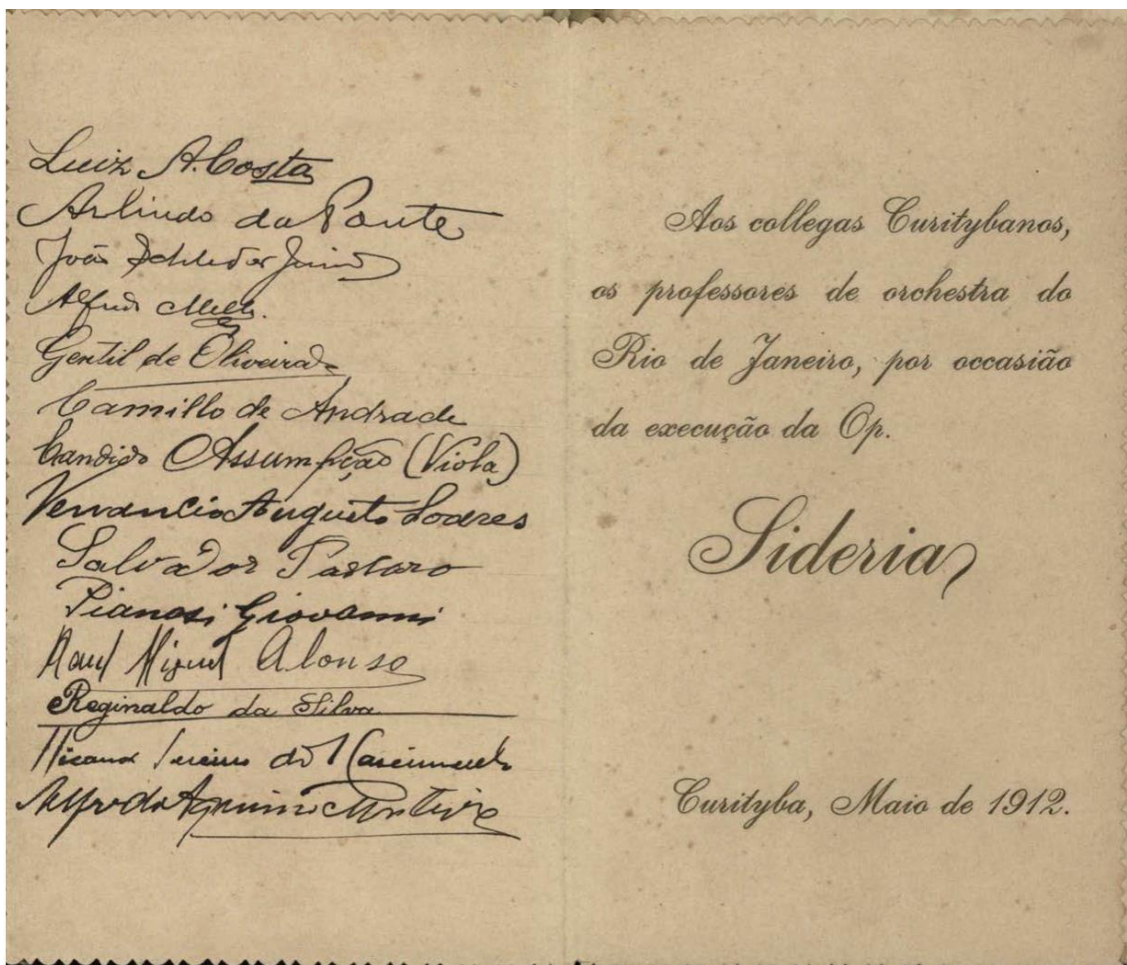 Luiz A. Costa
Arlindo da Ponte
João Junior
Alfredo Mello.
Gentil de Oliveira
Camillo de Andrade
Candido Assumpção (Viola)
Venancio Augusto Soares
Salvador
Pianosi Giovanni
Raul Miguel Alonso
Reginaldo da Silva
do Nascimento
Alfredo Aquino Monteiro
Aos collegas Curitybanos,
os professores de orchestra do
Rio de Janeiro, por occasião
da execução da Op.
Sideria
Curityba, Maio de 1912.